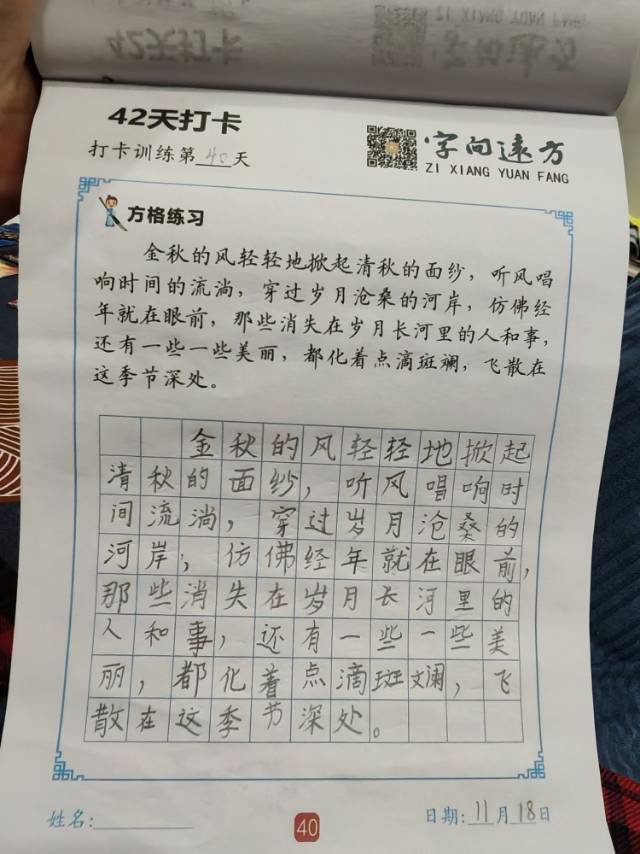 42天打卡
字向远方
42天打卡
打卡训练第40天
字向远方
ZI XIANG YUAN FANG
方格练习
金秋的风轻轻地掀起清秋的面纱，听风唱
响时间的流淌，穿过岁月沧桑的河岸，仿佛经
年就在眼前，那些消失在岁月长河里的人和事，
还有一些一些美丽，都化着点滴斑斓，飞散在
这季节深处。
金秋的风轻轻地掀起
清秋的面纱，听风唱响时
间流淌，穿过岁月沧桑的
河岸，仿佛经年就在眼前，
那些消失在岁月长河里的
人和事，还有一些一些美
丽，都化着点滴斑斓，飞
散在这季节深处。
姓名:
40
日期:11月18日